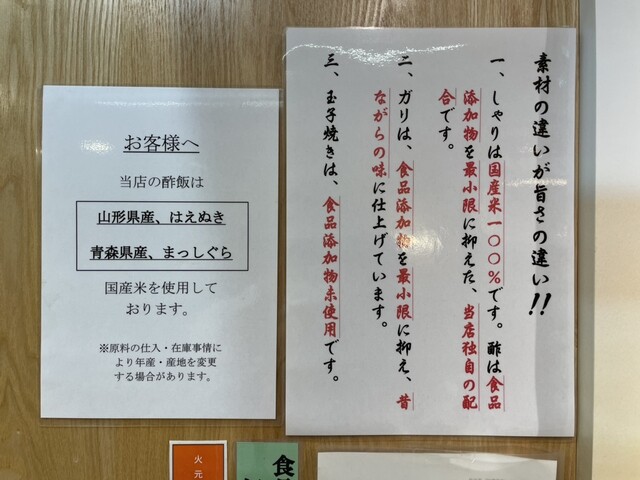 お客様へ
当店の酢飯は
山形県産、はえぬき
青森県産、まっしぐら
国産米を使用して
おります。
※原料の仕入・在庫事情に
より年産・産地を変更
する場合があります。
素材の違いが旨さの違い!!
一、しゃりは国産米一〇〇%です。酢は食品
添加物を最小限に抑えた、当店独自の配
合です。
二、ガリは、食品添加物を最小限に抑え、昔
ながらの味に仕上げています。
三、玉子焼きは、食品添加物未使用です。
火元
食